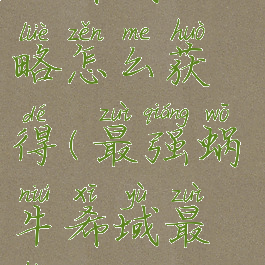 lüè zěn me huò
略怎么获
dé zuì qiáng wō
得(最强蜗
niú xī yù zuì
牛希域最